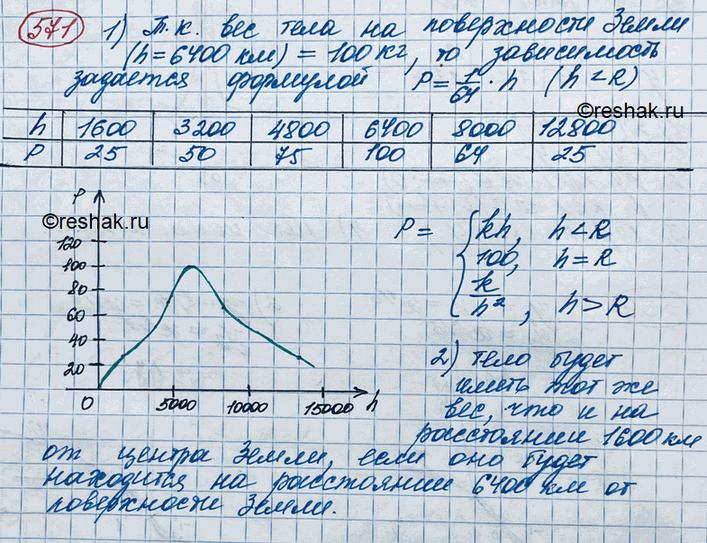 571 1) Т.к. вес тела на поверхности Земли
(h=6400 км) = 100 кг, то зависимость
задаётся формулой P=1/64·h (h<R)
©reshak.ru
h 1600 3200 4800 6400 8000 12800
P 25 50 75 100 64 25
P
©reshak.ru
120
100
80
60
40
20
0 5000 10000 15000 h
P= { kh, h<R
100, h=R
k/h², h>R
2) тело будет
иметь тот же
вес, что и на
расстоянии 1600 км
от центра Земли, если оно будет
находится на расстоянии 6400 км от
поверхности Земли.